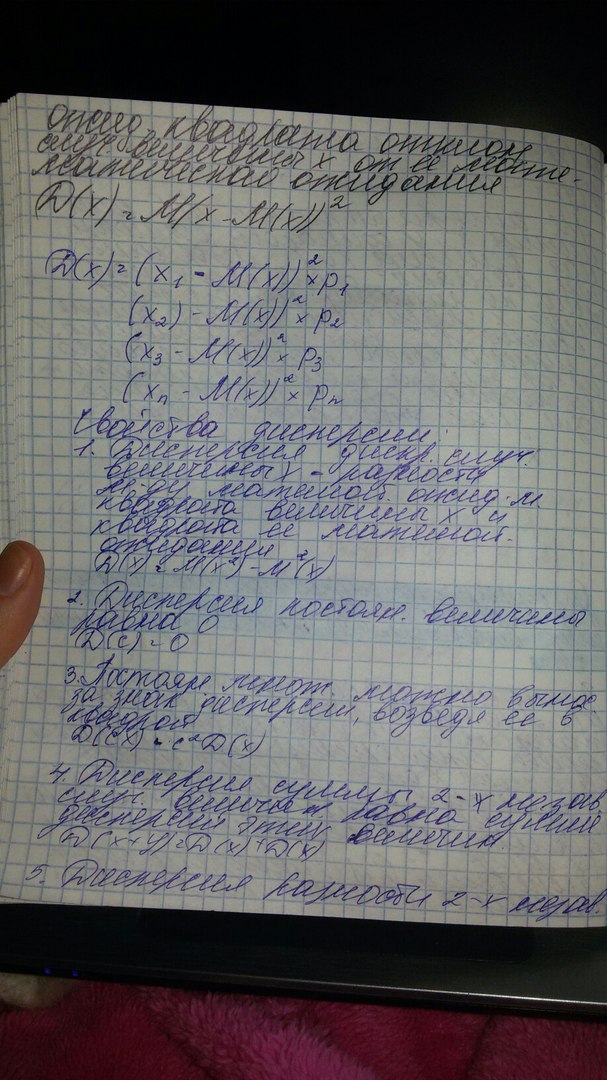 ожид. квадрата отклон.
случ. величины х от ее мате-
матического ожидания
D(x) = M(x - M(x))²
D(x) = (x₁ - M(x))² × p₁
(x₂) - M(x))² × p₂
(x₃ - M(x))² × p₃
(xₙ - M(x))² × pₙ
Свойства дисперсии
1. Дисперсия дискр. случ.
величины х - разность
м-ду математ. ожид-м
квадрата величины х и
квадрата ее математ.
ожидания
D(x) = M(x²) - M²(x)
2. Дисперсия постоян. величины
равна 0
D(C) = 0
3. Постоян. множ. можно вынос
за знак дисперсии, возведя ее в
квадрат
D(Cx) = c²D(x)
4. Дисперсия суммы 2-х незав
случ. величин равна сумме
дисперсии этих величин
D(x+y) = D(x) + D(x)
5. Дисперсия разности 2-х незав.